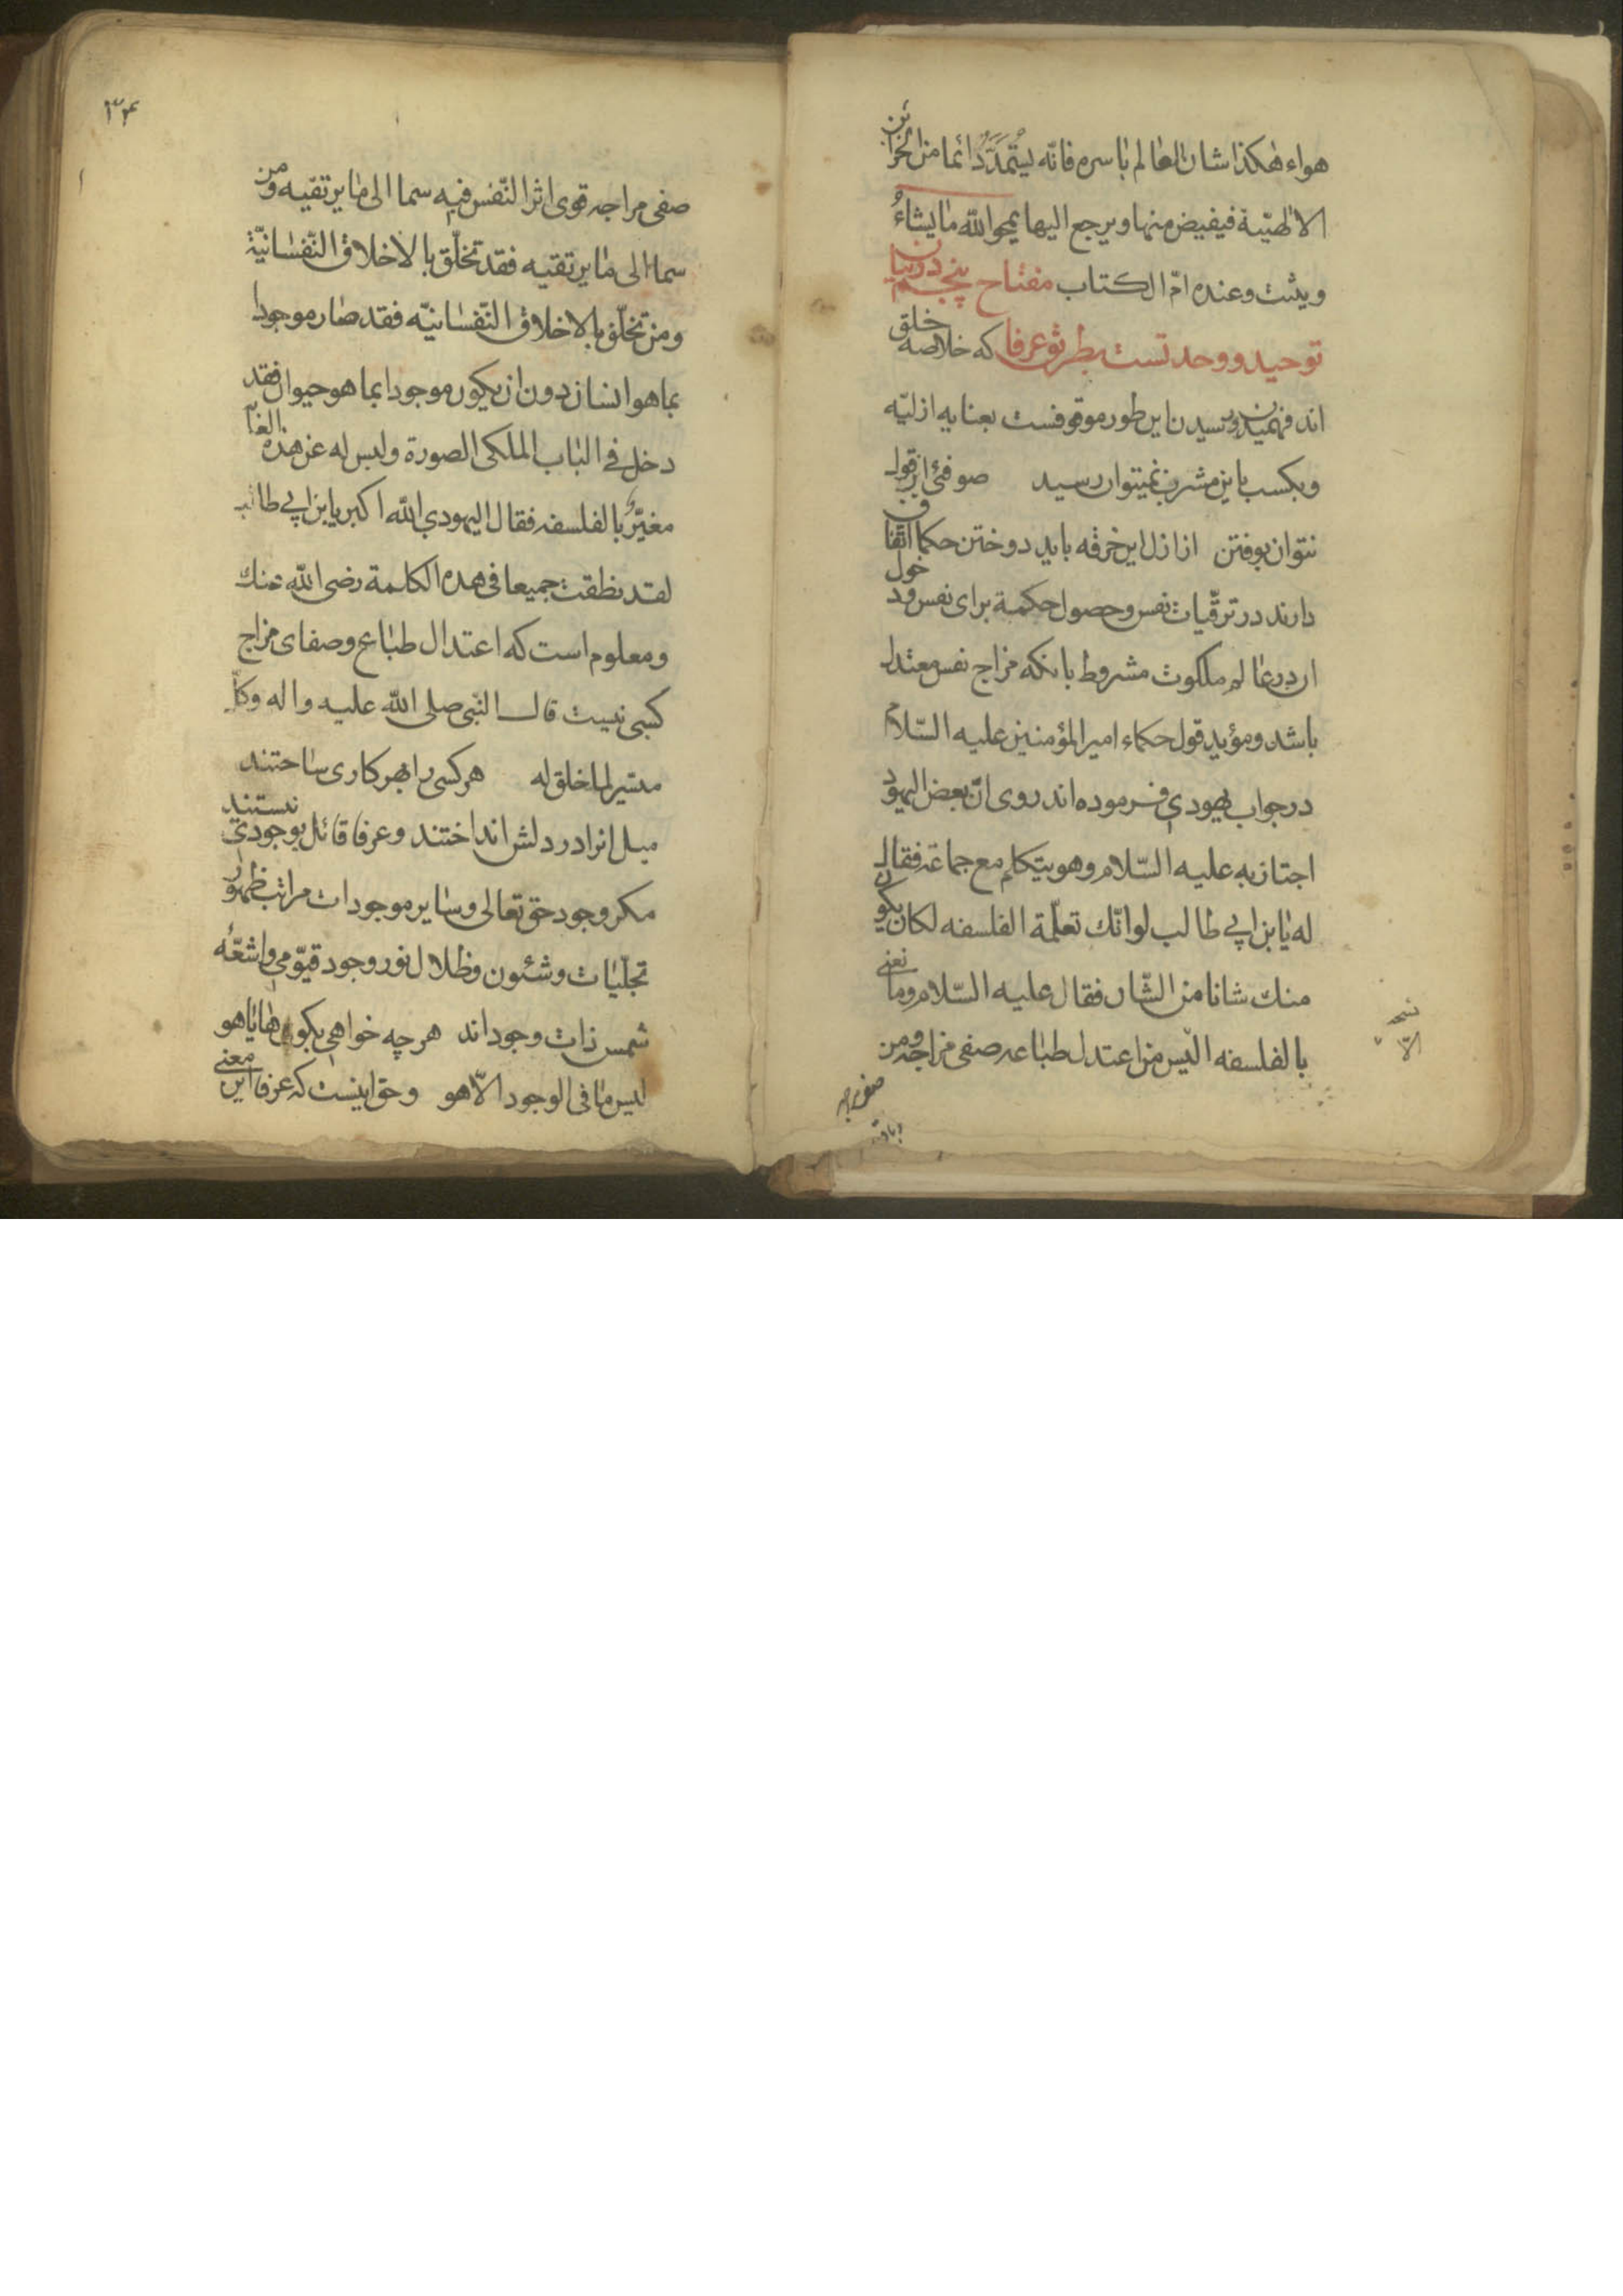 هواء هکذا شان العالم باسره فانّه یستمدّ دائما من الخزائن
الالهیّة فیفیض منها و یرجع الیها یمحو اللّه ما یشاءُ
و یثبت و عنده امّ الکتاب مفتاح پنجم در بیان
توحید و وحدتست بطریق عرفا که خلاصه خلق
اند فهمیدن و رسیدن این طور موقوفست بعنایه ازلیّه
و بکسب باین مشرب نمیتوان رسید صوفئ از قول
نتوان بوفتن از ازل این خرقه باید دوختن حکما اتّفاق
دارند در ترقّیات نفس و حصول حکمة برای نفس و دخول
او در عالم ملکوت مشروط بانکه مزاج نفس معتدل
باشد و مؤید قول حکماء امیر المؤمنین علیه السّلام
در جواب یهودی فرموده اند روی انّ بعض الیهود
اجتاز به علیه السّلام و هو یتکلم مع جماعة فقال
له یا بن ابی طالب لو انّک تعلّمة الفلسفه لکان یکون
منک شانا من الشّان فقال علیه السّلام و ما تعنی
بالفلسفه الیس من اعتدل طباعه صفی مزاجه و من
صفی مزاجه
نسخه
الا
۳۴
صفی مزاجه قوی اثر النّفس فیه سما الی ما یرتقیه و من
سما الی ما یرتقیه فقد تخلّق بالاخلاق النّفسانیّة
و من تخلّق بالاخلاق النّفسانیّه فقد صار موجودا
بما هو انسان دون ان یکون موجودا بما هو حیوان فقد
دخل فی الباب الملکی الصورة و لیس له عن هذه الغایة
مغیّر بالفلسفه فقال الیهودی اللّه اکبر یا بن ابی طالب
لقد نطقت جمیعا فی هذه الکلمة رضی اللّه عنک
و معلوم است که اعتدال طبایع و صفای مزاج
کسبی نیست قال النّبی صلی اللّه علیه و اله و کلّ
میسّر لما خلق له هر کسی را بهر کاری ساختند
میل انرا در دلش انداختند و عرفا قائل بوجودی نیستند
مکر وجود حق تعالی و سایر موجودات مراتب ظهور
تجلّیات و شئون و ظلال نور وجود قیّومی و اشعّه
شمس ذات وجود اند هر چه خواهی بکو ها یا هو
لیس ما فی الوجود الّا هو و حق اینست که عرفا این معنی